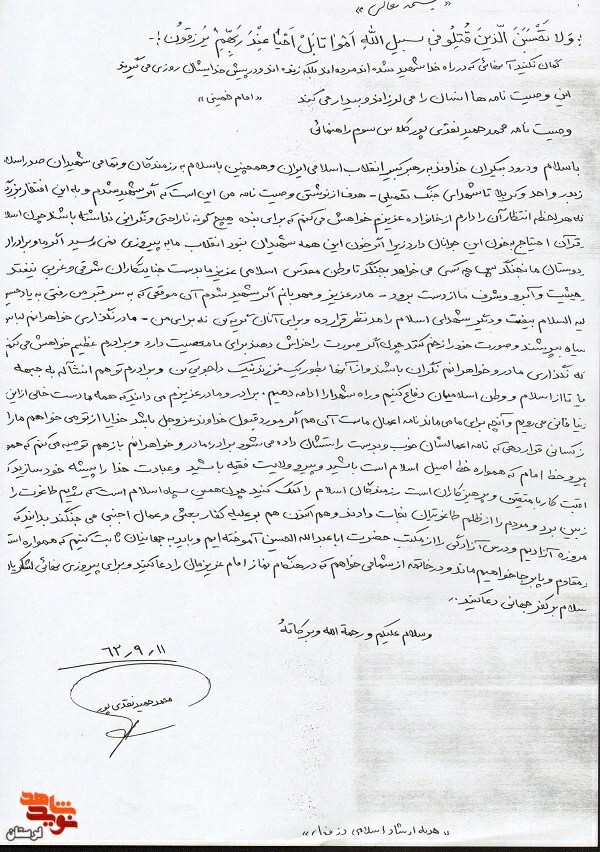 «بسمه تعالی»
؛ وَلا تَحْسَبَنَ الّذینَ قُتِلُوا فی سبیلِ اللّه اَمْواتا بَلْ اَحْیاءٌ عِنْدَ رَبّهِمْ یُرزَقُون ؛-
گمان نکنید آنهائی که در راه خدا شهید شده اند مرده اند بلکه زنده اند و در پیش خدایشان روزی می گیرند
این وصیت نامه ها انسان را می لرزاند و بیدار می کند «امام خمینی»
وصیت نامه محمد حمید نقدی پور کلاس سوم راهنمائی
باسلام و درود بیکران خداوند به رهبر کبیر انقلاب اسلامی ایران و همچنین با سلام به رزمندگان و تمامی شهیدان صدر اسلا
زبدر و احد و کربلا تا شهدای جنگ تحمیلی - هدف از نوشتن وصیت نامه من این است که اگر شهید شدم و به این افتخار بزرگ
که هر لحظه انتظار آن را دارم از خانواده عزیزم خواهش می کنم که برای بنده هیچ گونه ناراحتی و نگرانی نداشته باشند چون اسلا
قرآن احتیاج به خون این جوانان دارد زیرا اگر خون این همه شهیدان نبود انقلاب ما به پیروزی نمی رسید اگر ما و برادران
دوستان ما نجنگد پس چه کسی می خواهد بجنگد تا وطن مقدس اسلامی عزیز ما بدست جنایتکاران شرقی و غربی نیفتد
حیثیت و آبرو و شرف ما از دست برود - مادر عزیز و مهربانم اگر شهید شدم آن موقعی که به سر قبر من رفتی به یاد حسین
لیه السلام بیفت و دیگر شهدای اسلام را مد نظر قرار ده و برای آنان گریه کن نه برای من - مادر نگذاری خواهرانم لباس
سیاه بپوشند و صورت خود را زخم کنند چون اگر صورت را خراش دهند برای ما معصیت دارد و برادرم عظیم خواهش می کنم
که نگذاری مادر و خواهرانم نگران باشند و از آنها بطور یک فرزند نیک دلجویی کن و برادرم تو هم انشاءاله به جبهه
یا تا از اسلام و وطن اسلامیمان دفاع کنیم و راه شهدا را ادامه دهیم. برادر و مادر عزیزم می دانید که همه ما دست خالی از این
دنیا فانی می رویم و آنچه برای ما می ماند نامه اعمال ماست آن هم اگر مورد قبول خداوند عزوجل باشد خدایا از تو می خواهم ما را
ز کسانی قرار دهی که نامه اعمالشان خوب و بدست راستشان داده می شود برادر، مادر و خواهرانم باز هم توصیه می کنم که همو
پیرو خط امام که همواره خط اصیل اسلام است باشید و پیرو ولایت فقیه باشید و عبادت خدا را پیشه خود سازید که
اقبت کار با متقین و پرهیزکاران است رزمندگان اسلام را کمک کنید چون همین سپاه اسلام است که رژیم طاغوت را
زبین برد و مردم را از ظلم طاغوتیان نجات دادند و هم اکنون هم بر علیه کفار بعثی و عمال اجنبی می جنگند بدانند که
مروزه آزادیم و درس آزادگی را از مکتب حضرت اباعبدالله الحسین آموخته ایم و باید به جهانیان ثابت کنیم که همواره است
مقاوم و پابرجا خواهیم ماند و در خاتمه از شما می خواهم که در هنگام نماز امام عزیزمان را دعا کنید و برای پیروزی نهائی لشکریان
سلام بر کفر جهانی دعا کنید..
وسلام علیکم و رحمة الله و برکاتهُ
۶۲ر۹ر۱۱
محمد حمید نقدی پور
نوید شاهد
لرستان
«هدیه ارشاد اسلامی»